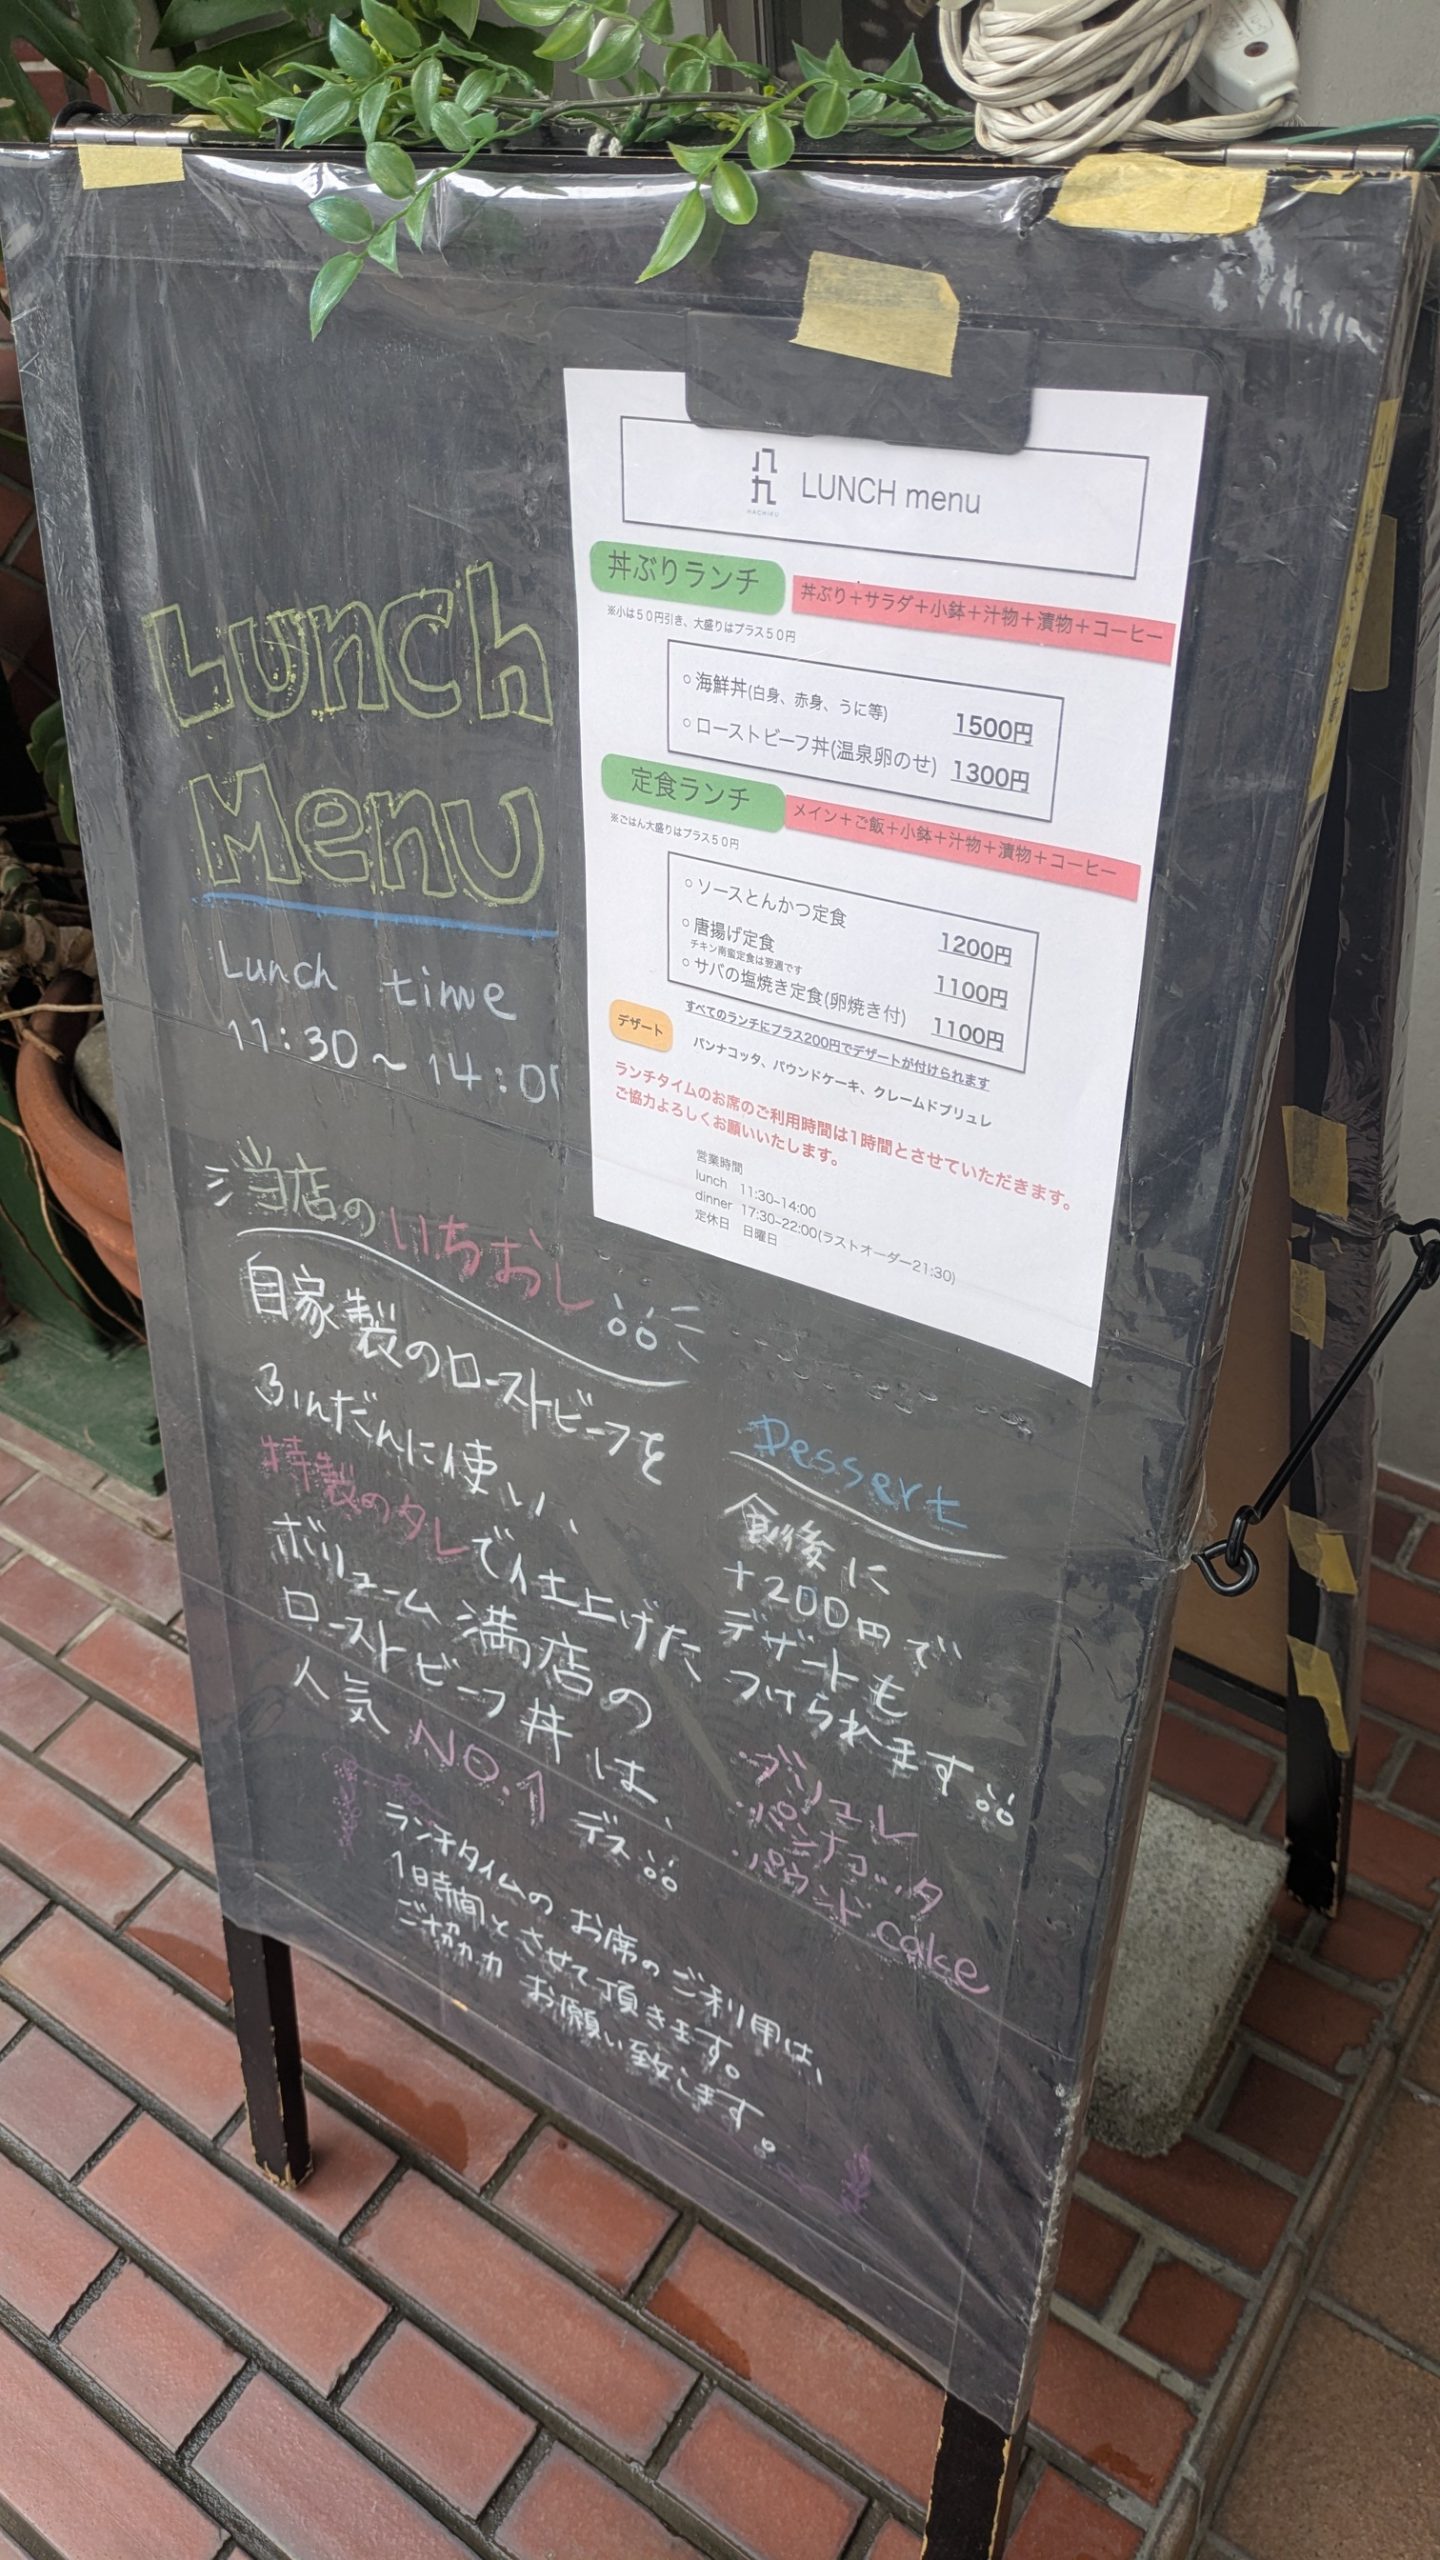 Lunch
Menu
Lunch time
11:30〜14:0
八九
HACHIKU
LUNCH menu
丼ぶりランチ
丼ぶり＋サラダ＋小鉢＋汁物＋漬物＋コーヒー
※小は５０円引き、大盛りはプラス５０円
○ 海鮮丼(白身、赤身、うに等) 1500円
○ ローストビーフ丼(温泉卵のせ) 1300円
定食ランチ
メイン＋ご飯＋小鉢＋汁物＋漬物＋コーヒー
※ごはん大盛りはプラス５０円
○ ソースとんかつ定食 1200円
○ 唐揚げ定食 1100円
チキン南蛮定食は翌週です
○ サバの塩焼き定食(卵焼き付) 1100円
デザート
すべてのランチにプラス200円でデザートが付けられます
パンナコッタ、パウンドケーキ、クレームドブリュレ
ランチタイムのお席のご利用時間は1時間とさせていただきます。
ご協力よろしくお願いいたします。
営業時間
lunch 11:30~14:00
dinner 17:30~22:00(ラストオーダー21:30)
定休日 日曜日
当店のいちおし!!
自家製のローストビーフを
ふんだんに使い、
特製のタレで仕上げた
ボリューム満店の
ローストビーフ丼は、
人気NO.1デス!!
Dessert
食後に
+200円で
デザートも
つけられます!!
・ブリュレ
・パンナコッタ
・パウンドcake
ランチタイムのお席のご利用は、
1時間とさせて頂きます。
ご協力お願い致します。